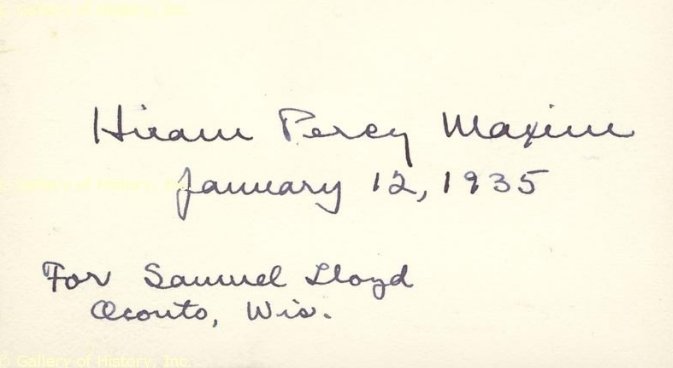 © Gallery of History, Inc.
Hiram Percy Maxim
© Gallery of History, Inc.
January 12, 1935
For Samuel Lloyd
Oconto, Wis.
© Gallery of History, Inc.